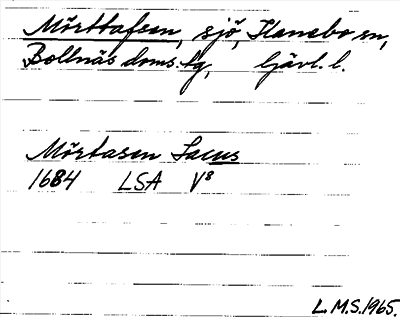 Mörttafsen, sjö, Hanebo sn,
Bollnäs doms.-g, Gävl. l.
Mörtasen Lacus
1684 LSA V⁸
L.M.S. 1965.